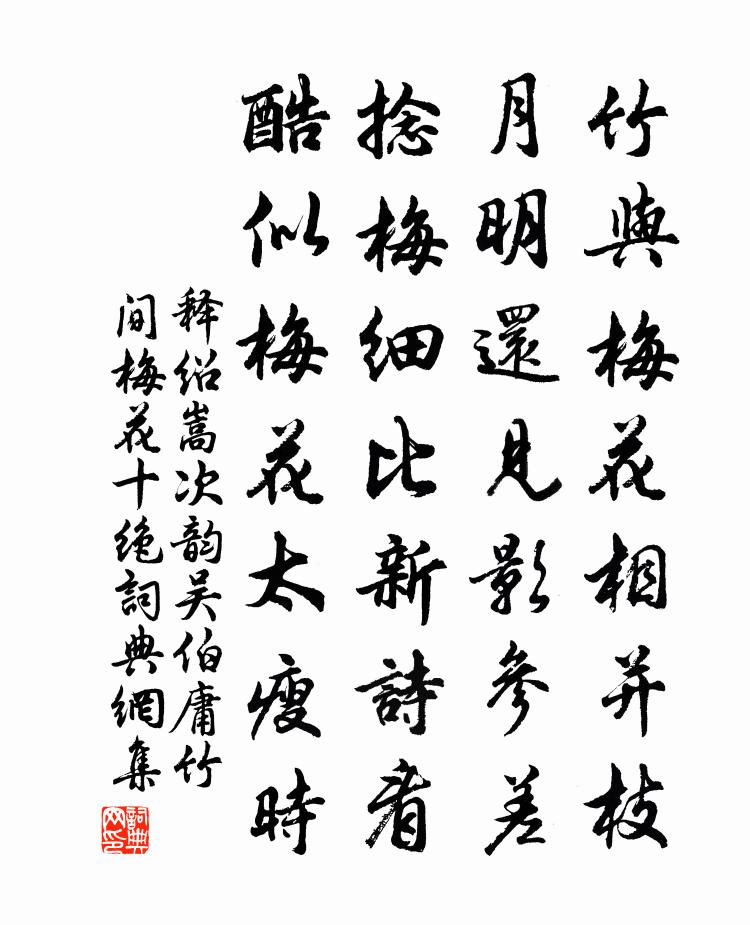 竹與梅花相并枝
月明還見影參差
捻梅細比新詩看
酷似梅花太瘦時
释紹嵩次韵吴伯庸竹
間梅花十絶詞典網集
詞典网印